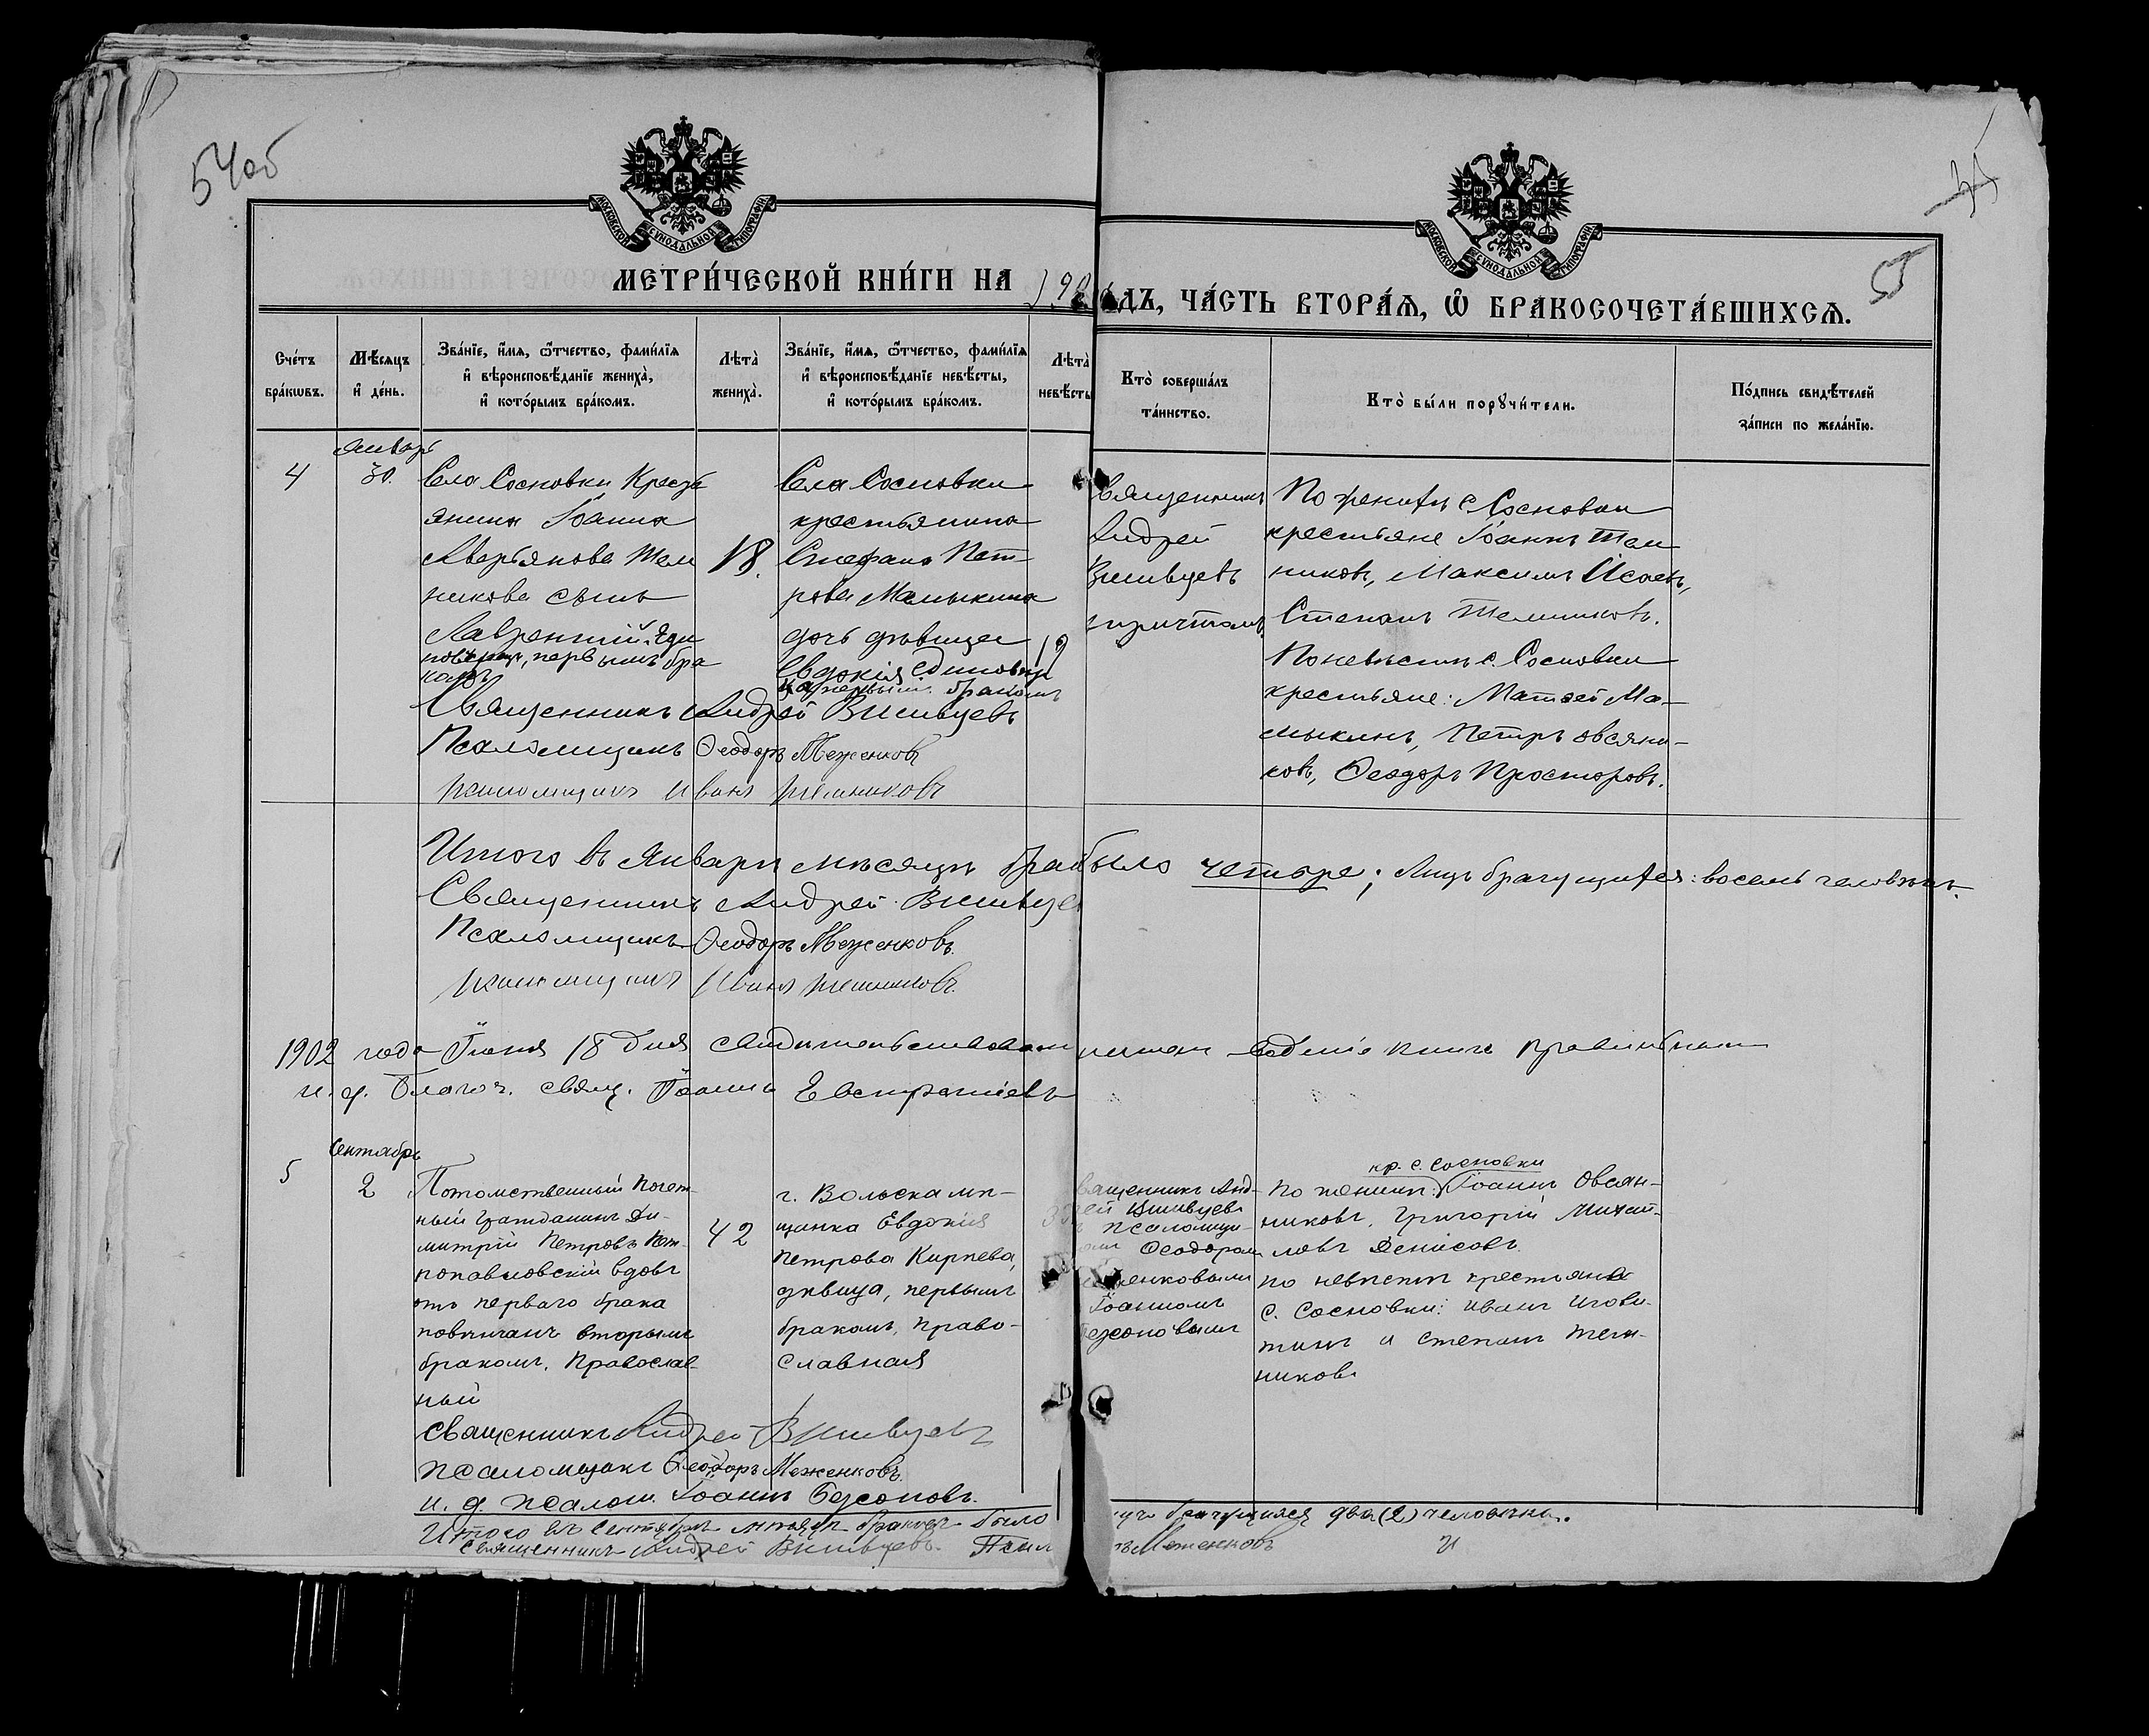 54об
55
МОСКОВСКОЙ СУНОДАЛЬНОЙ ТИПОГРАФІИ
МОСКОВСКОЙ СУНОДАЛЬНОЙ ТИПОГРАФІИ
МЕТРИ́ЧЕСКОЙ КНИ́ГИ НА 190
ДЪ, ЧА́СТЬ ВТОРА́Ѧ, Ѽ БРАКОСОЧЕТА́ВШИХСѦ.
Сче́тъ бра́кѡвъ.
Мѣ́сяцъ и҆ де́нь.
Зва́нїе, и҆́мѧ, ѻ҆́тчество, фами́лїѧ
и҆ вѣроисповѣ́данїе жениха̀,
и҆ кото́рымъ бра́комъ.
Лѣта̀ жениха̀.
Зва́нїе, и҆́мѧ, ѻ҆́тчество, фами́лїѧ
и҆ вѣроисповѣ́данїе невѣ́сты,
и҆ кото́рымъ бра́комъ.
Лѣта̀ невѣ́сты
Кто̀ соверша́лъ
та́инство.
Кто̀ бы́ли порꙋчи́тели.
По́дпись свидѣ́телей
за́писи по жела́нїю.
4
Январь
30.
Села Сосновки Кресть
янина Іоанна
Аверьянова Тем
никова сынъ
Лаврентій, Еди
новѣрец, первымъ бра
комъ
18.
Села Сосновки
крестьянина
Стефана Пет-
рова Мамыкина
дочь дѣвица
Евдокія Единовѣр
ка первымъ бракомъ
19
вященникъ
Андрей
Вшивцевъ
причтомъ
По женихѣ с. Сосновки
крестьяне Іоаннъ Тем
никовъ, Максимъ Исаевъ,
Степанъ Темниковъ.
По невѣстѣ с. Сосновки
крестьяне: Матвей Ма-
мыкинъ, Петръ Овсяни-
ковъ, Ѳеодоръ Просторовъ.
Священникъ Андрей Вшивцевъ
Псаломщикъ Ѳеодоръ Меженковъ
псаломщикъ Иванъ Темниковъ
Итого въ Январѣ мѣсяцѣ бра было четыре; Лицъ брачущихся: восемь человѣкъ.
Священникъ Андрей Вшивце
Псаломщикъ Ѳеодоръ Меженковъ.
псаломщикъ Иванъ Темниковъ.
1902 года Іюня 18 дня свидѣтельствовалъ веденіе книги правильно
и. д. Благоч. свящ. Іоаннъ Евстратіевъ
5
Сентябрь
2
Потомственный Почет-
ный Гражданинъ Ди-
митрій Петровъ Пет-
ропавловскій вдовъ
отъ перваго брака
повѣнчанъ вторымъ
бракомъ, Православ-
ный
42
г. Вольска мѣ-
щанка Евдокія
Петрова Кирпева,
дѣвица, первымъ
бракомъ, право-
славная
вященникъ Анд-
рей Вшивцевъ
псаломщи-
Ѳеодоромъ
енковымъ
Іоанномъ
езсоновымъ
кр. с. Сосновки
По женихѣ: Іоаннъ Овсян-
никовъ, Григорій Михай-
ловъ Денисовъ.
по невѣстѣ крестьяне
с. Сосновки: Иванъ
и Степанъ Тем-
никовъ
Священникъ Андрей Вшивцевъ
псаломщикъ Ѳеодоръ Меженковъ.
и. д. псалом. Іоаннъ Безсоновъ.
Итого въ Сентябрѣ мѣсяцѣ браковъ было
брачущихся два (2) человѣка.
Священникъ Андрей Вшивцевъ. Псал
Меженковъ